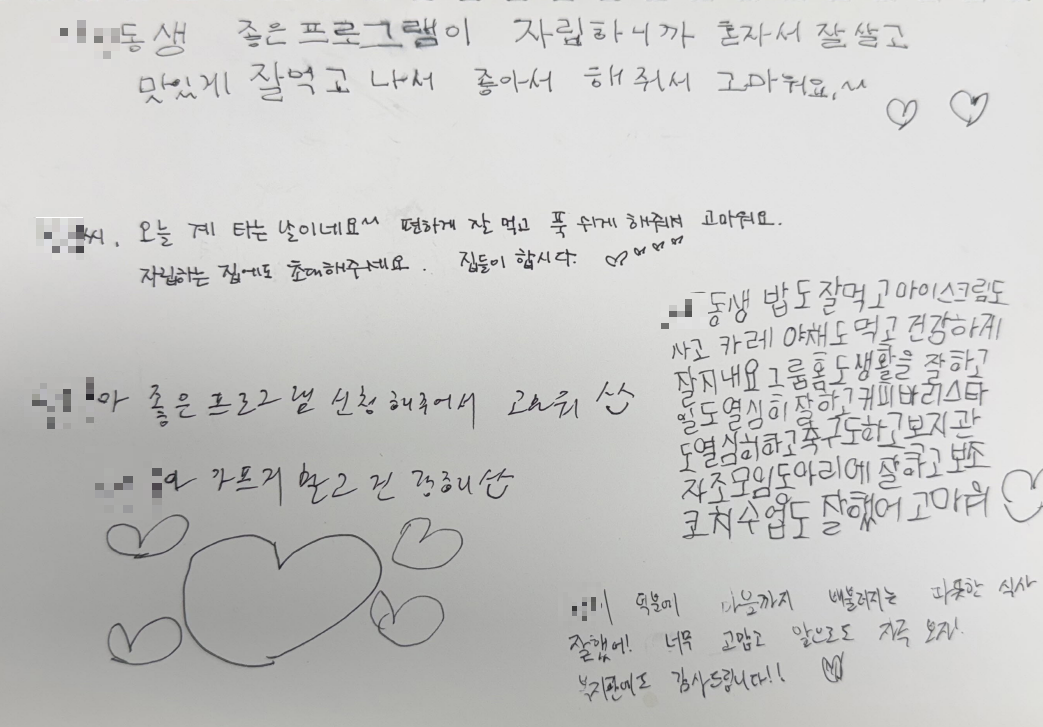 동생 좋은프로그램이 자립하니까 혼자서 잘살고
맛있게 잘먹고 나서 좋아서 해줘서 고마워요,~~
씨, 오늘 계 타는 날이네요~~ 편하게 잘 먹고 푹 쉬게 해줘서 고마워요.
자립하는 집에도 초대해주세요. 집들이 합시다.
아 좋은프로그램 신청해주어서 고마워
아 가프지 말고 건강해
동생 밥도 잘먹고 아이스크림도
사고 카레 야채도 먹고 건강하게
잘지내요 그룹홈도 생활을 잘하고
일도열심히 잘하고 커피바리스타
도열심히하고축구도하고보지관
자조모임도아리에 잘하고 보조
코치수업도 잘했어 고마워
덕분에 마음까지 배불러지는 따뜻한 식사
잘했어! 너무 고맙고 앞으로도 자주 보자!
복지관에도 감사드립니다!!